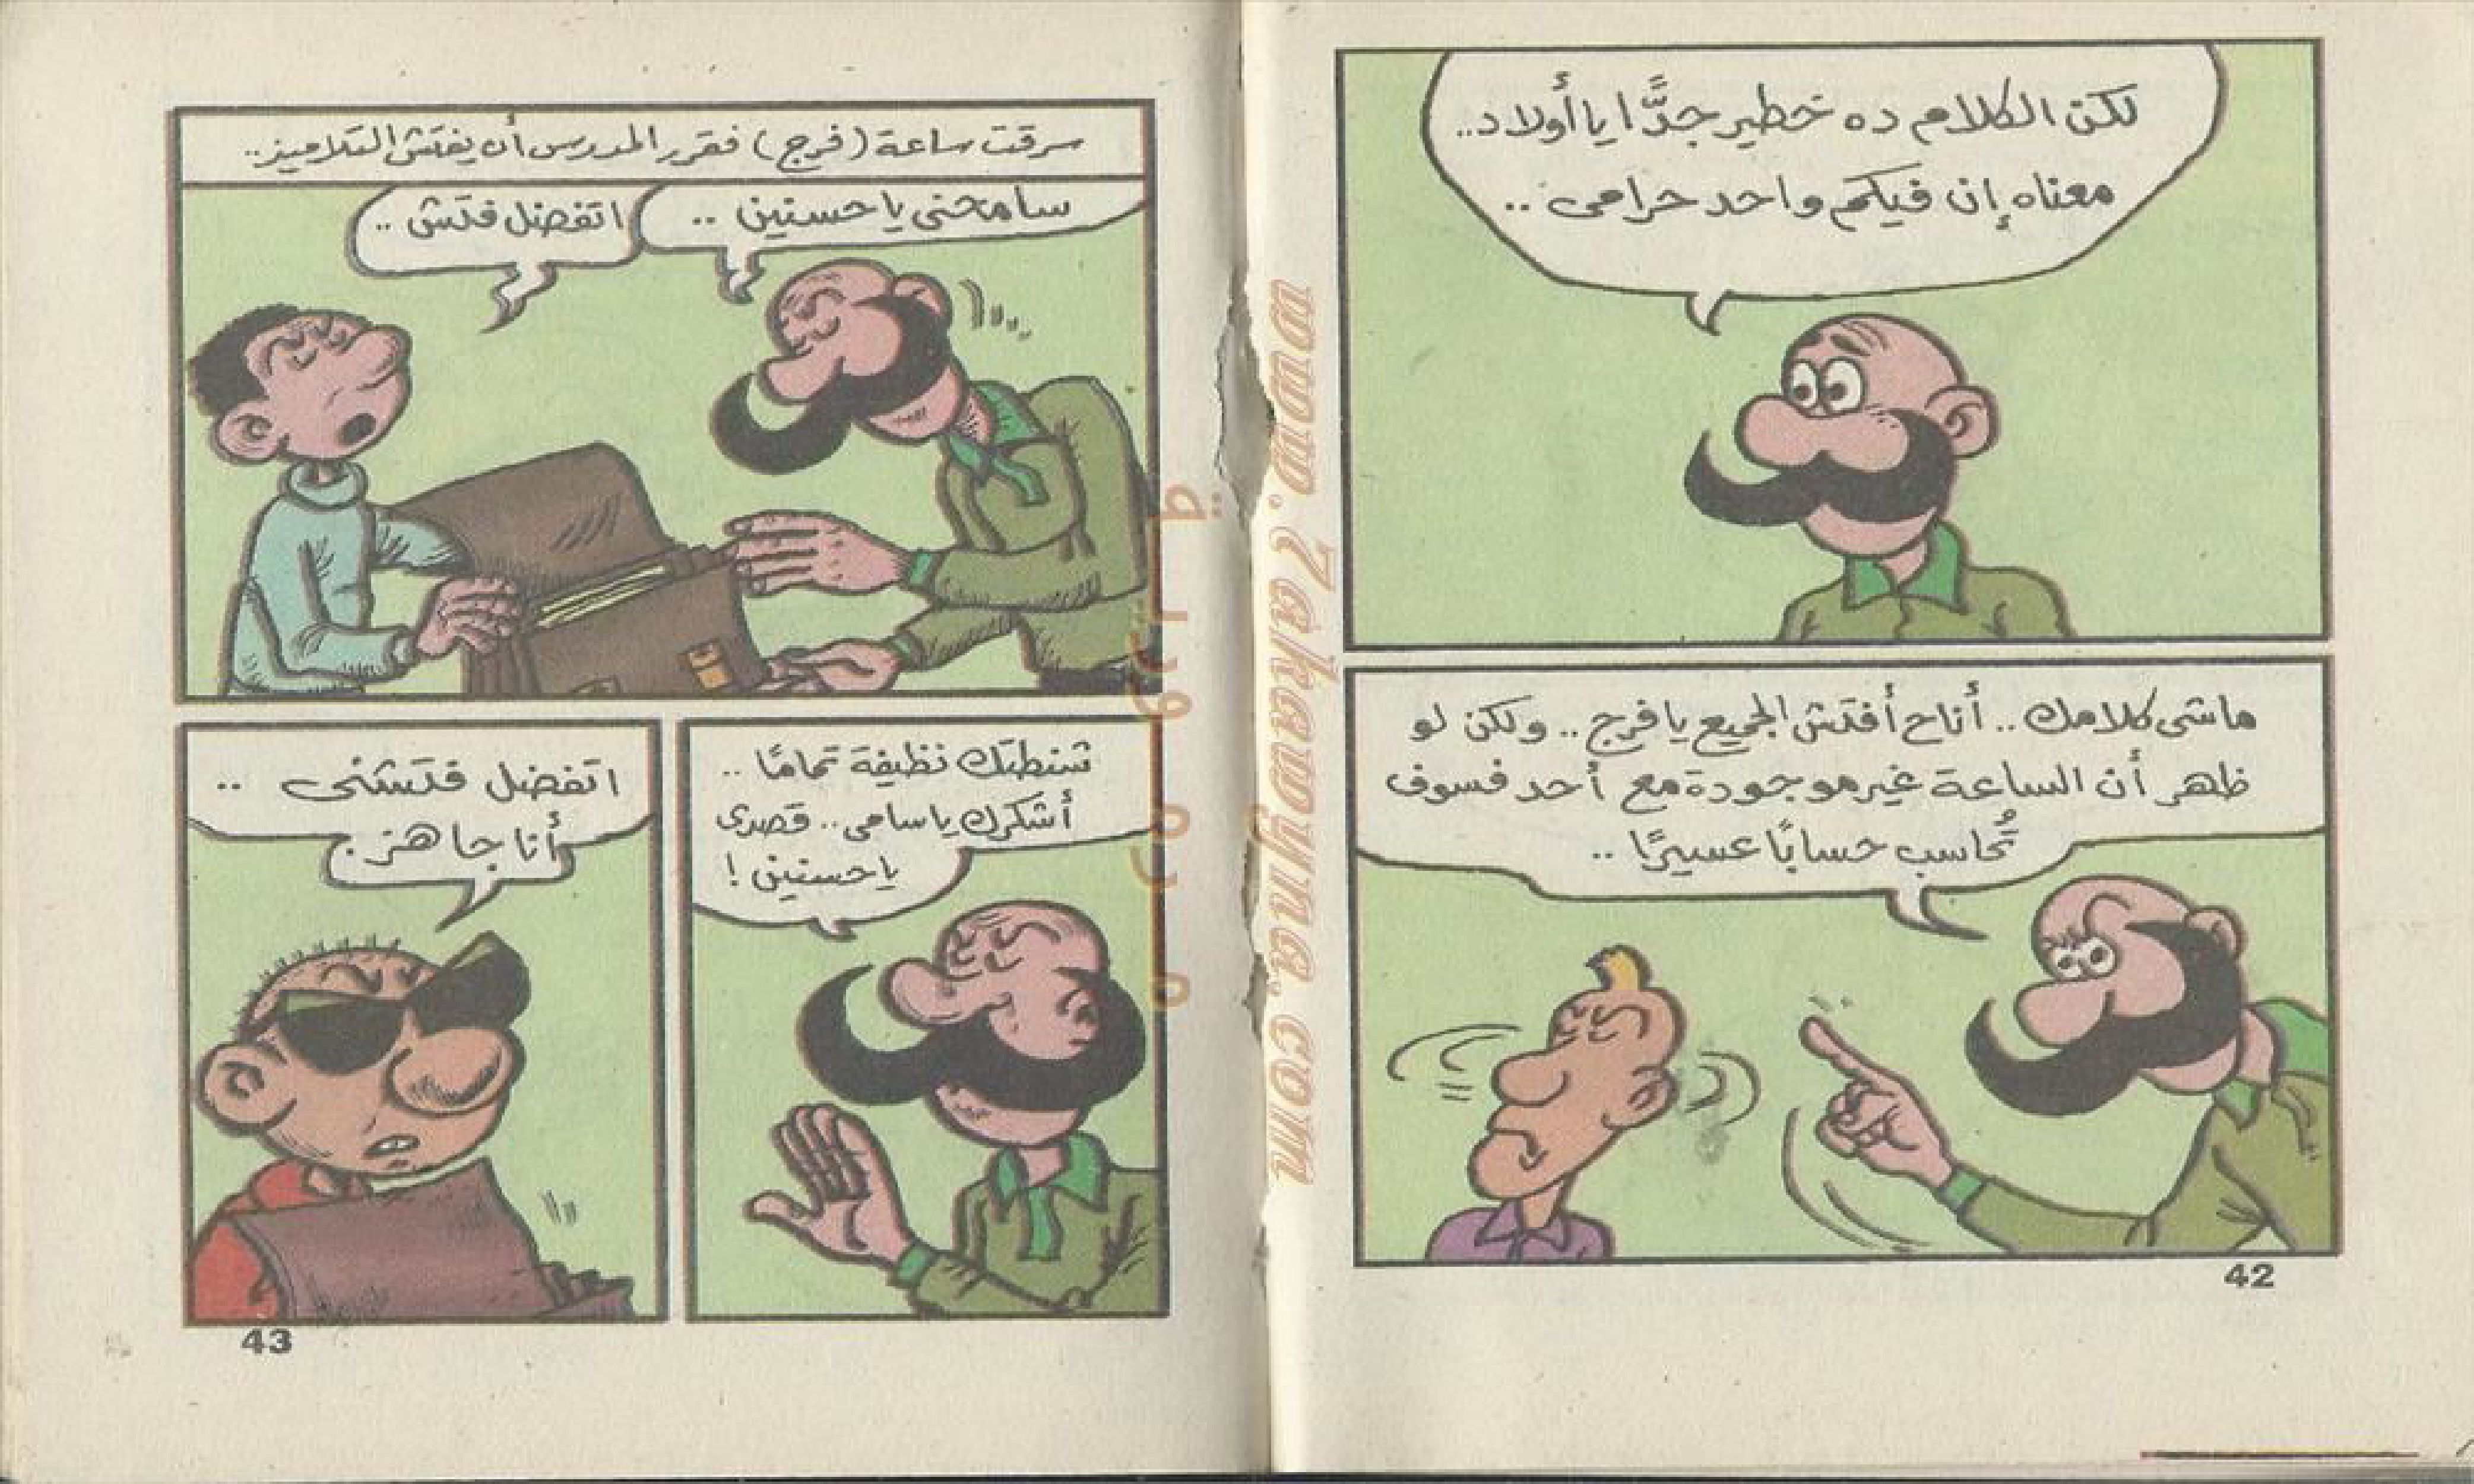 لكن الكلام ده خطير جدًّا يا أولاد..
معناه إن فيكم واحد حرامى..
ماشى كلامك.. أناح أفتش الجميع يا فرج.. ولكن لو
ظهر أن الساعة غير موجودة مع أحد فسوف
تُحاسب حسابًا عسيرًا..
42
سرقت ساعة (فرج) فقرر المدرس أن يفتش التلاميذ..
سامحنى يا حسنين ..
اتفضل فتش ..
شنطتك نظيفة تمامًا ..
أشكرك يا سامى.. قصدى
يا حسنين !
اتفضل فتشنى ..
أنا جاهز.
43
www.7akawyna.com